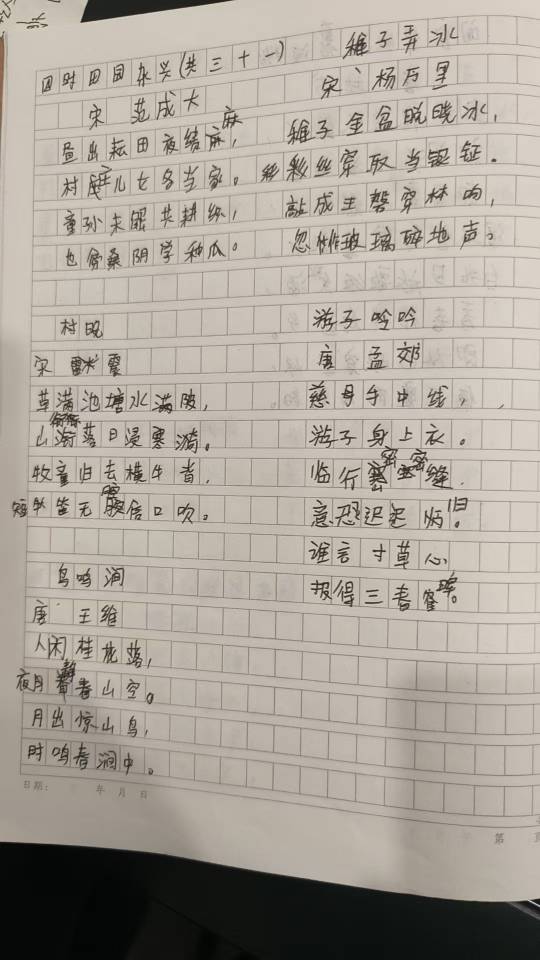 四时田园杂兴(共三十一)
宋 范成大
昼出耘田夜绩麻,
村庄儿女各当家。
童孙未解共耕织,
也傍桑阴学种瓜。
村晚
宋 雷震
草满池塘水满陂,
山衔落日浸寒漪。
牧童归去横牛背,
短笛无腔信口吹。
鸟鸣涧
唐 王维
人闲桂花落,
夜静春山空。
月出惊山鸟,
时鸣春涧中。
日期: 年 月 日
稚子弄冰
宋 杨万里
稚子金盆脱晓冰,
彩丝穿取当银钲。
敲成玉磬穿林响,
忽作玻璃碎地声。
游子吟
唐 孟郊
慈母手中线,
游子身上衣。
临行密密缝
意恐迟迟归。
谁言寸草心
报得三春晖。
第 页